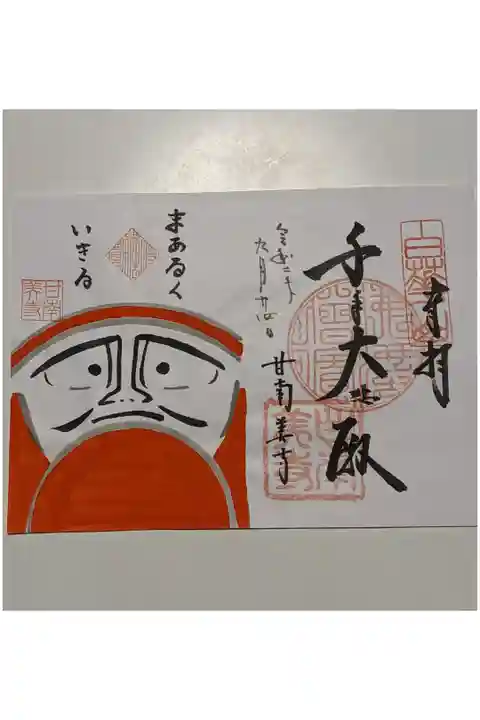 奉拝
千手大悲殿
甘南美寺
令和二年
九月廿四日
まあるく
いきる
甘南
美寺